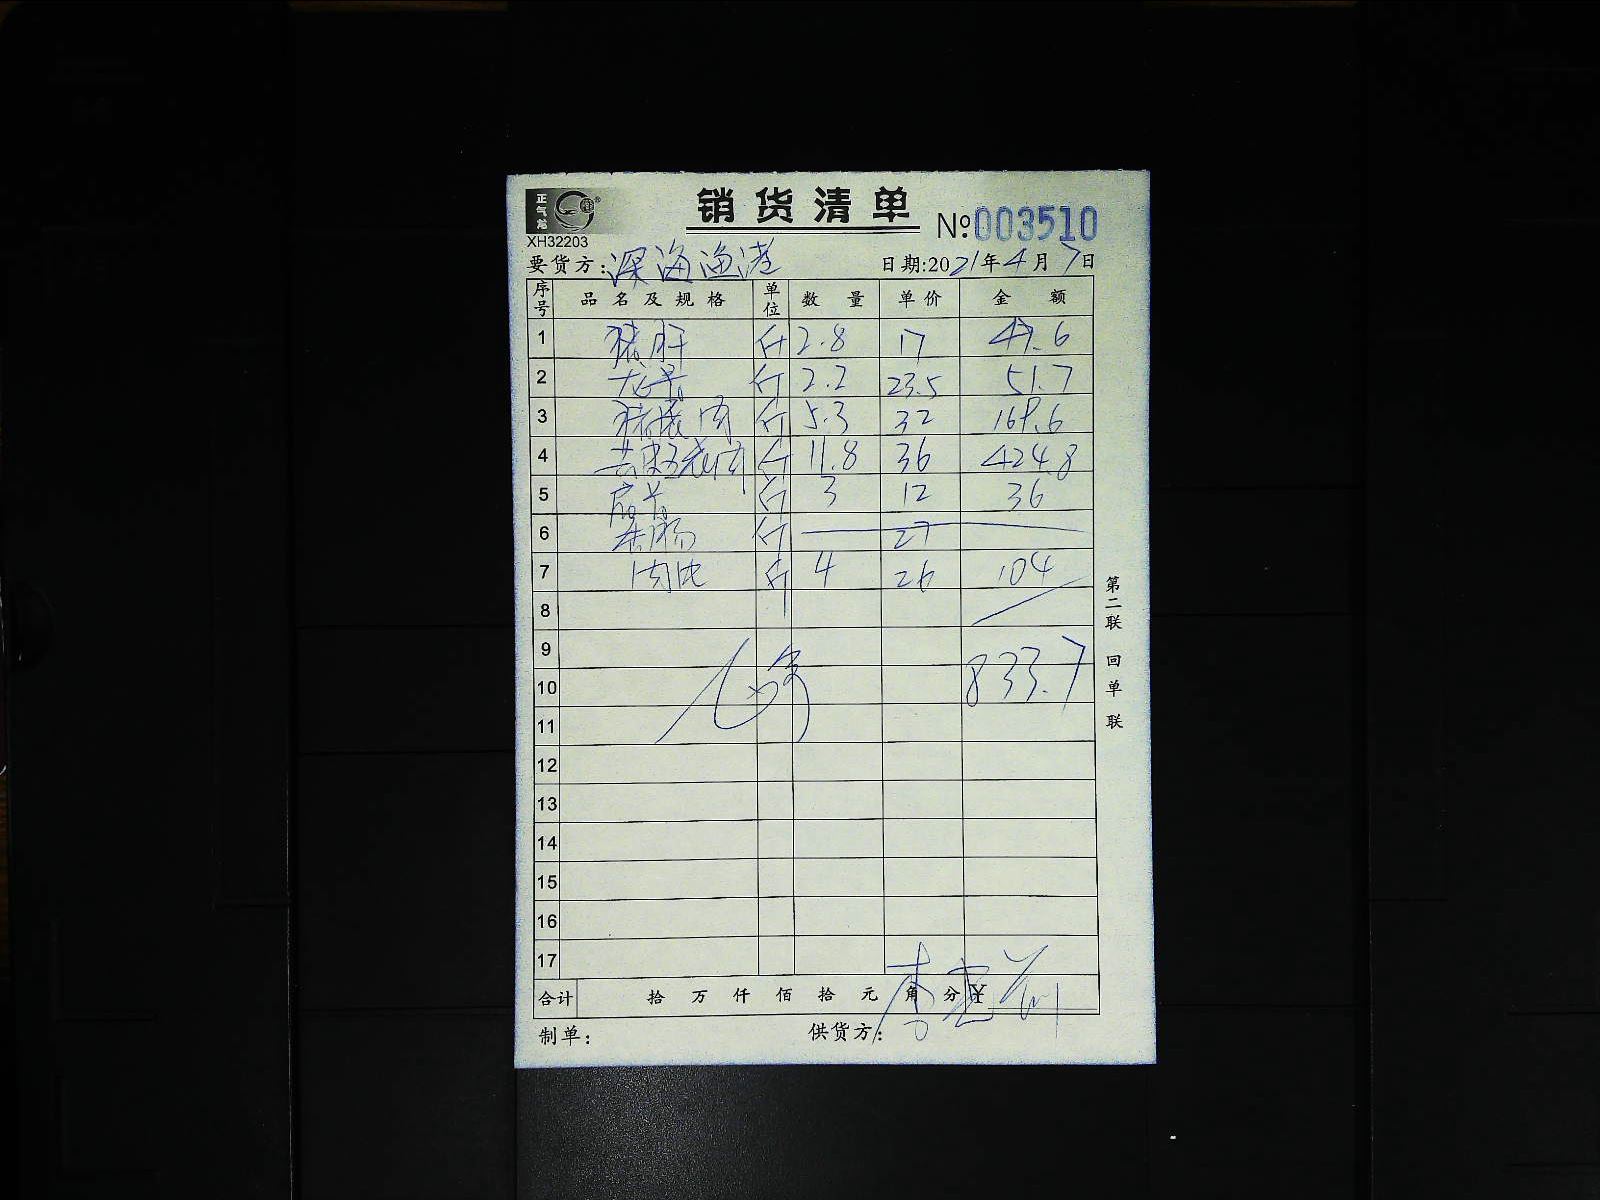 正气龙
销货清单
XH32203
No:003510
要货方:深海渔港
日期:2021年4月7日
序号 品名及规格 单位 数量 单价 金额
1 猪肝 斤 2.8 17 47.6
2 龙骨 斤 2.2 23.5 51.7
3 猪瘦肉 斤 5.3 32 169.6
4 去皮五花肉 斤 11.8 36 424.8
5 扇骨 斤 3 12 36
6 斤 27
7 斤 4 26 104
8
9
10 833.7
11
12
13
14
15
16
17
合计 拾万仟佰拾元角分¥
制单: 供货方:
第二联 回单联